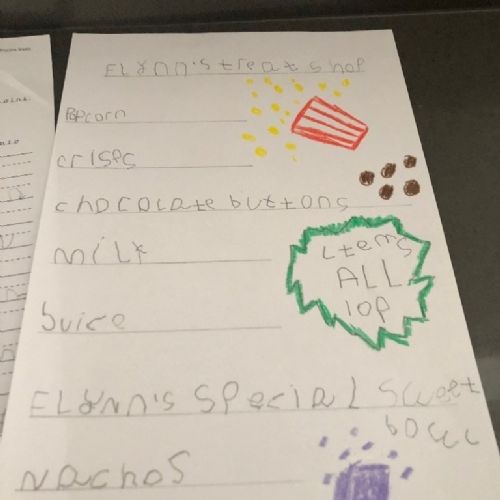 FLYNN'S treat shop
POPCORN
crisps
chocolate buttons
milk
Items
ALL
10p
Juice
FLYNN'S Special Sweet
boxes
Nachos